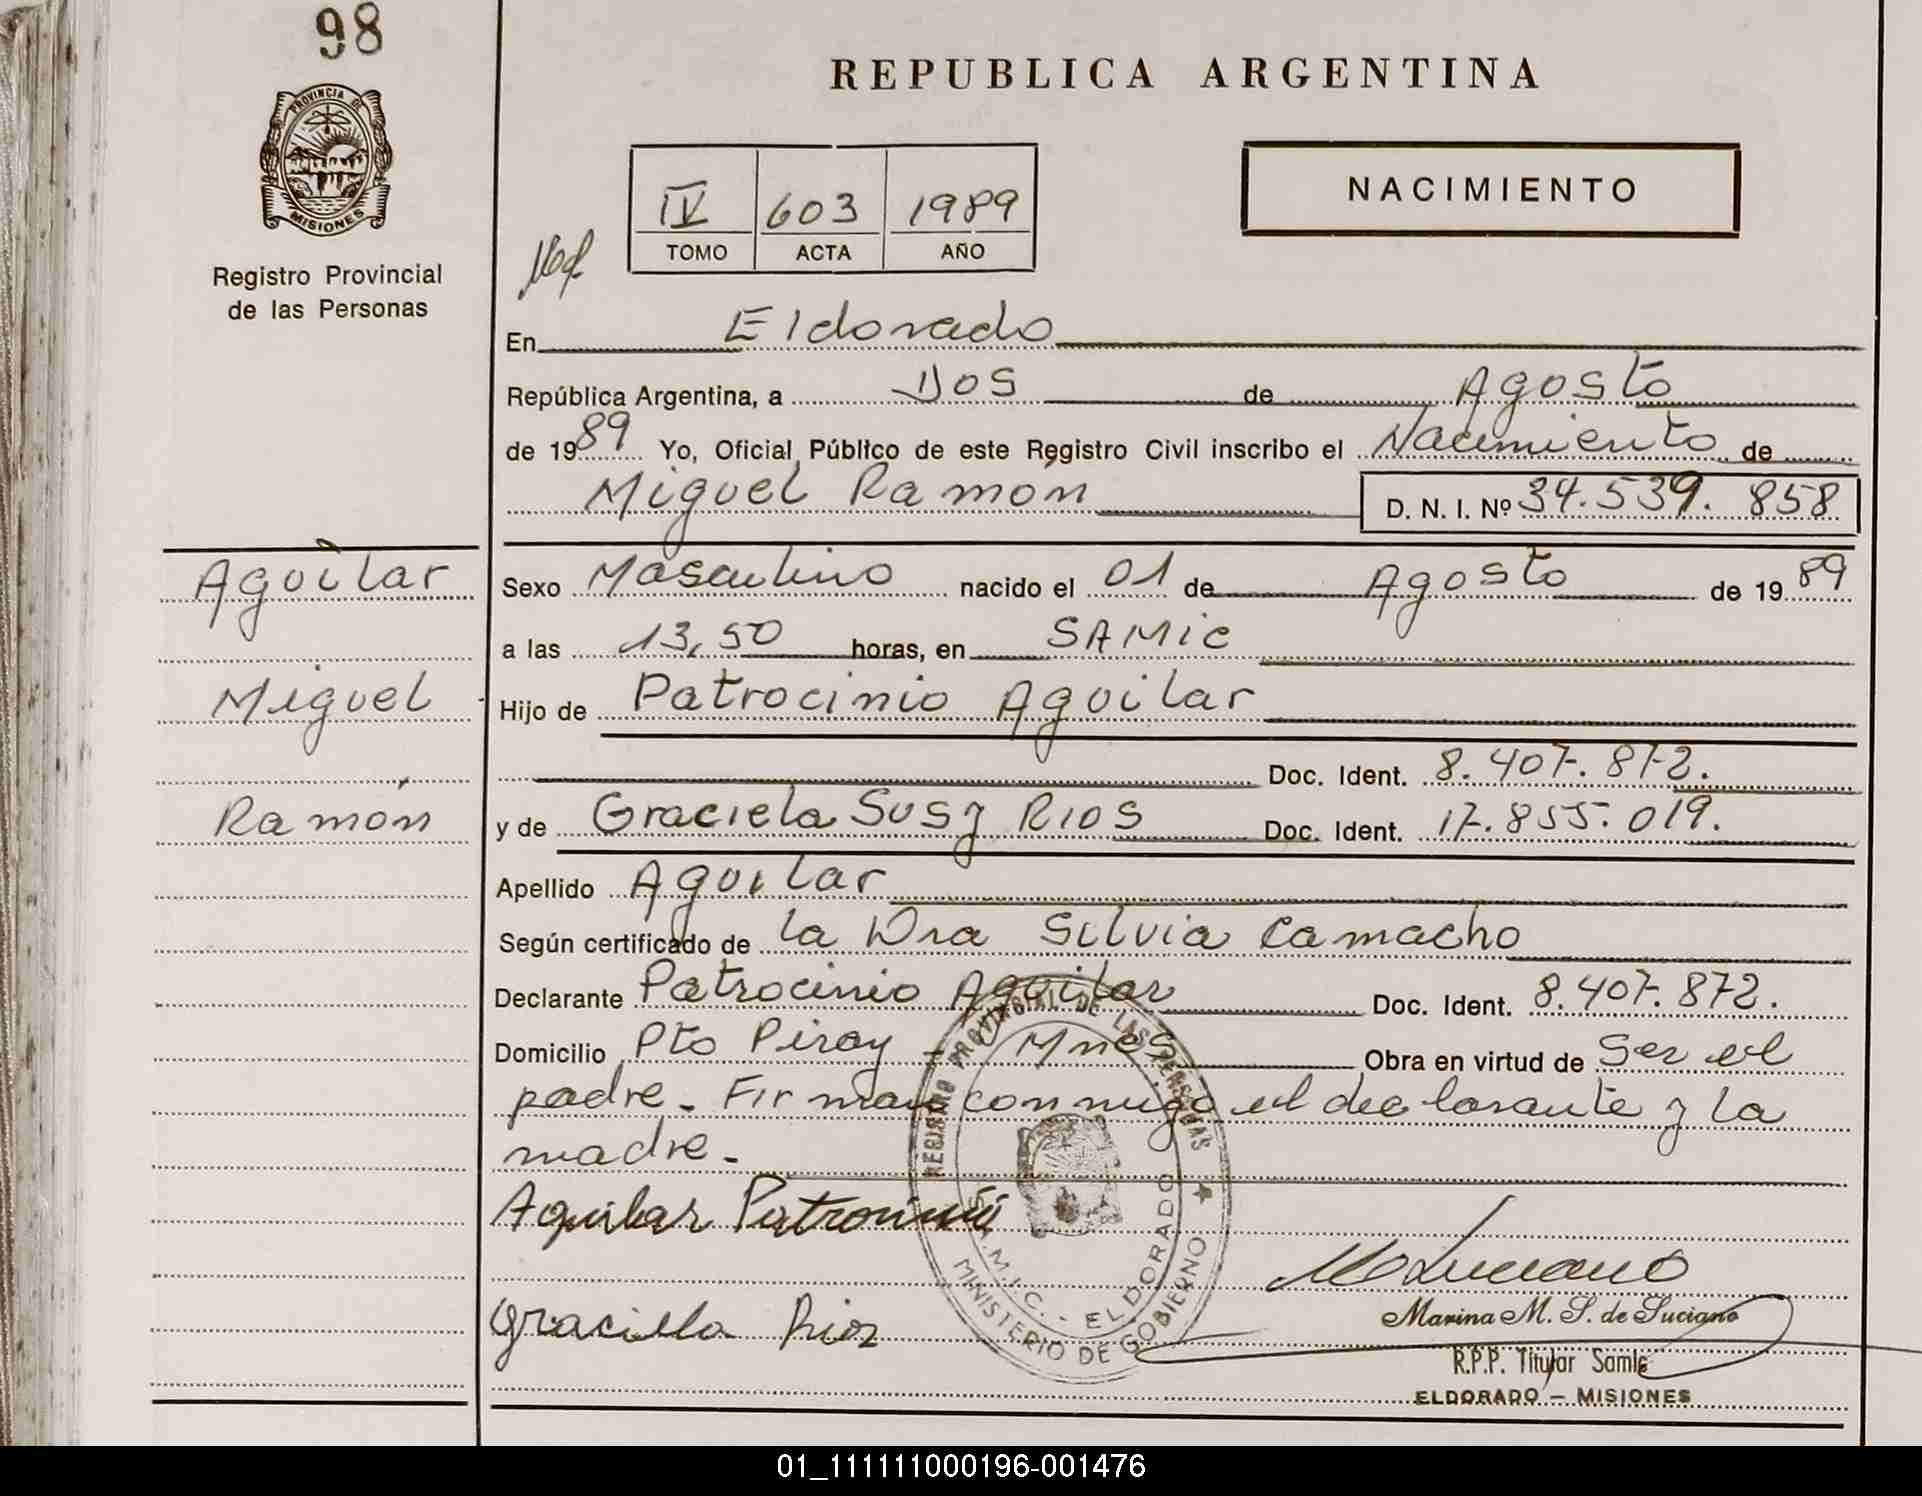 98
REPUBLICA ARGENTINA
PROVINCIA DE
MISIONES
Registro Provincial
de las Personas
IV 603 1989
TOMO ACTA AÑO
NACIMIENTO
En Eldorado
República Argentina, a Dos de Agosto
de 1989 Yo, Oficial Público de este Registro Civil inscribo el Nacimiento de
Miguel Ramón D. N. I. Nº 34.539.858
Aguilar
Miguel
Ramón
Sexo Masculino nacido el 01 de Agosto de 1989
a las 13,50 horas, en SAMIC
Hijo de Patrocinio Aguilar
Doc. Ident. 8.407.872.
y de Graciela Susy Rios Doc. Ident. 17.855.019.
Apellido Aguilar
Según certificado de la Dra Silvia Camacho
Declarante Patrocinio Aguilar Doc. Ident. 8.407.872.
Domicilio Pto Piray - Mnes Obra en virtud de Ser el
padre. Firman conmigo el declarante y la
madre.-
Aguilar Patrocinio
Graciela Rios
REGISTRO PROVINCIAL DE LAS PERSONAS
S.A.M.I.C. - ELDORADO
MINISTERIO DE GOBIERNO
M Luciano
Marina M. S. de Luciano
R.P.P. Titular Samic
ELDORADO - MISIONES
01_111111000196-001476